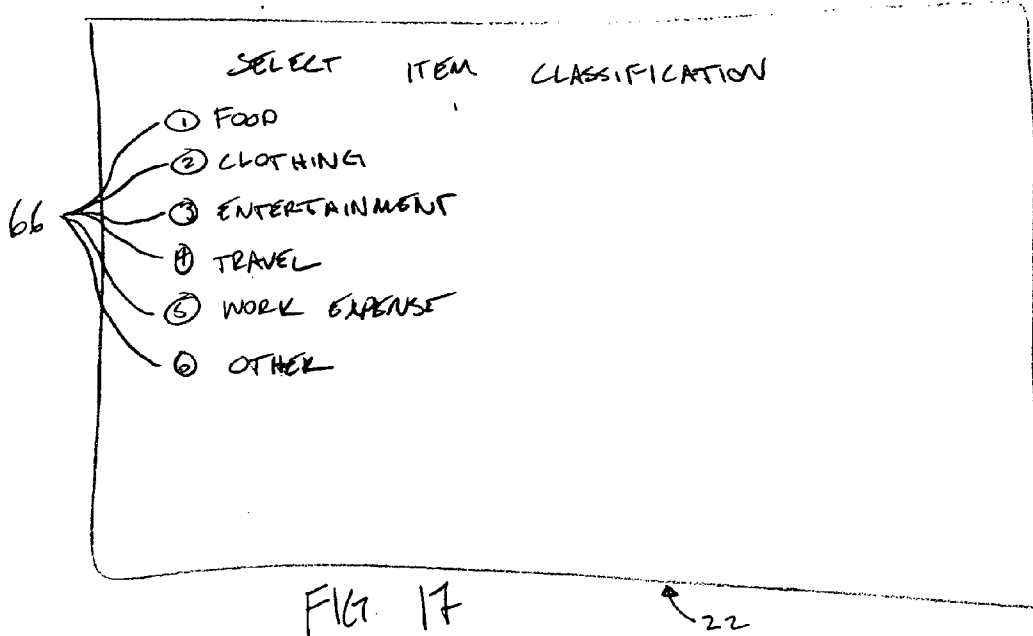 SELECT ITEM CLASSIFICATION
① FOOD
② CLOTHING
③ ENTERTAINMENT
④ TRAVEL
⑤ WORK EXPENSE
⑥ OTHER
66
FIG. 17
22